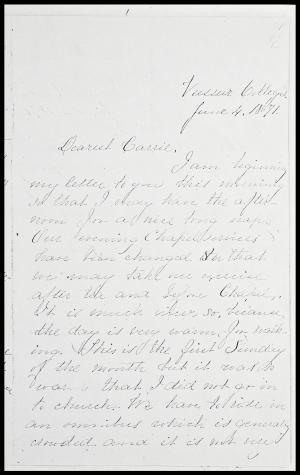 Vassar College,
June 4, 1871.
Dearest Carrie,
I am begining
my letter to you this morning
so that I may have the after-
noon for a nice long nap.
Our evening Chapel services
have been changed so that
we may take our exercise
after tea and before Chapel.
It is much nicer so, because
the day is very warm for walk-
ing. This is the first Sunday
of the month but it was so
warm that I did not go in
to church. We have to ride in
an omnibus which is generally
crowded and it is not very